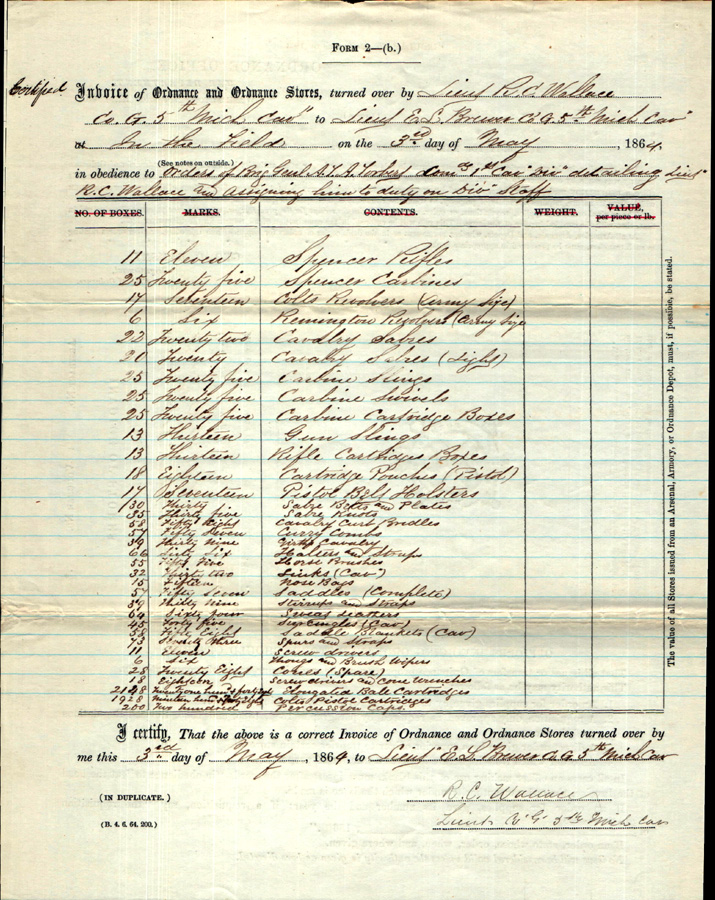 Form 2—(b.)
Certified
Invoice of Ordnance and Ordnance Stores, turned over by Lieut R. C. Wallace
Co. G. 5th Mich Cav" to Lieut E. L. Brewer Co G. 5th Mich Cav"
at In the Field on the 3rd day of May, 1864,
(See notes on outside.)
in obedience to Orders of Brig Genl A. T. A. Torbert Comg 1st Cav" Div" detailing Lieut
R. C. Wallace and assigning him to duty on Div" Staff
NO. OF BOXES. MARKS. CONTENTS. WEIGHT. VALUE, per piece or lb.
11 Eleven Spencer Rifles
25 Twenty five Spencer Carbines
17 Seventeen Colts Revolvers (Army Size)
6 Six Remington Revolvers (Army Size
22 Twenty two Cavalry Sabres
20 Twenty Cavalry Sabres (Light)
25 Twenty five Carbine Slings
25 Twenty five Carbine Swivels
25 Twenty five Carbine Cartridge Boxes
13 Thirteen Gun Slings
13 Thirteen Rifle Cartridges Boxes
18 Eighteen Cartridge Pouches (Pistol)
17 Seventeen Pistol Belt Holsters
30 Thirty Sabre Belts and Plates
35 Thirty five Sabre Knots
58 Fifty Eight Cavalry Curb Bridles
57 Fifty Seven Curry Combs
39 Thirty Nine Girths Cavalry
66 Sixty Six Halters and Straps
55 Fifty Five Horse Brushes
32 Thirty two Links (Cav")
15 Fifteen Nose Bags
57 Fifty Seven Saddles (Complete)
39 Thirty Nine Stirrups and Straps
64 Sixty four Sweat Leathers
45 Forty five Surcingles (Cav)
58 Fifty Eight Saddle Blankets (Cav)
73 Seventy Three Spurs and Straps
11 Eleven Screw drivers
6 Six Thongs and Brush Wipers
28 Twenty Eight Cones (Spare)
18 Eighteen Screw drivers and Cone Wrenches
2148 Twenty one hund & forty Eight Elongated Ball Cartridges
1928 Nineteen hund & Colts Pistol Cartridges
200 Two hundred Percussion Caps
The value of all Stores issued from an Arsenal, Armory, or Ordnance Depot, must, if possible, be stated.
I certify, That the above is a correct Invoice of Ordnance and Ordnance Stores turned over by
me this 3rd day of May, 1864, to Lieut E. L. Brewer Co G. 5th Mich Cav
(IN DUPLICATE.)
R. C. Wallace
(B. 4. 6. 64. 200.)
Lieut Co "G" 5th Mich Cav